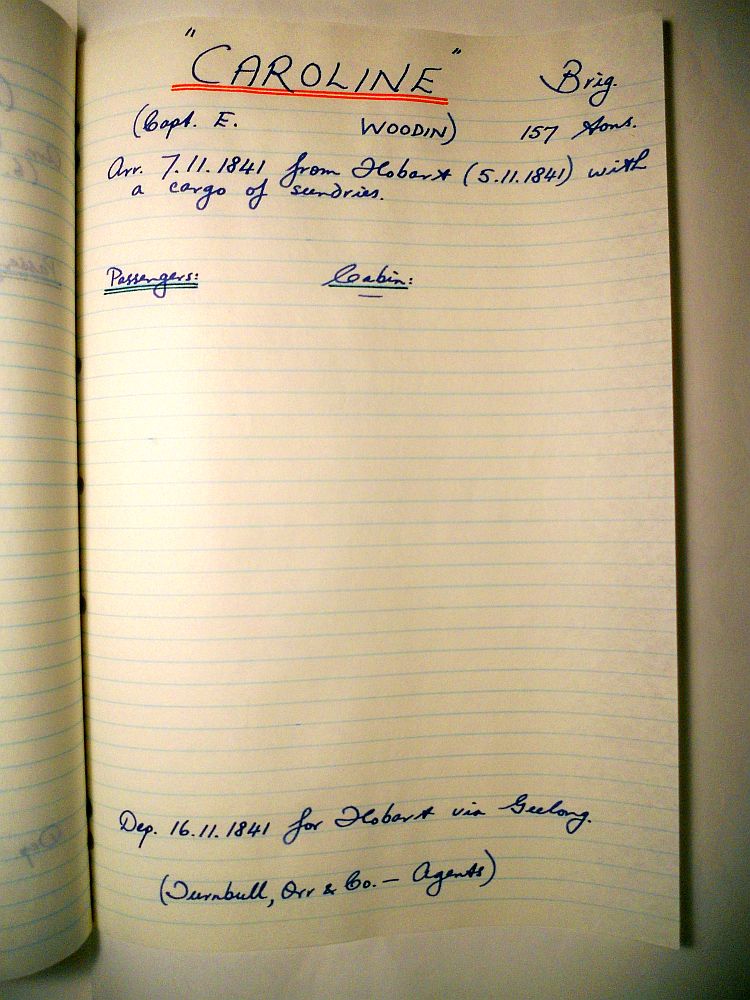 "CAROLINE" Brig.
(Capt. E. WOODIN) 157 tons.
Arr. 7.11.1841 from Hobart (5.11.1841) with
a cargo of sundries.
Passengers: Cabin:
Dep. 16.11.1841 for Hobart via Geelong.
(Turnbull, Orr & Co. — Agents)